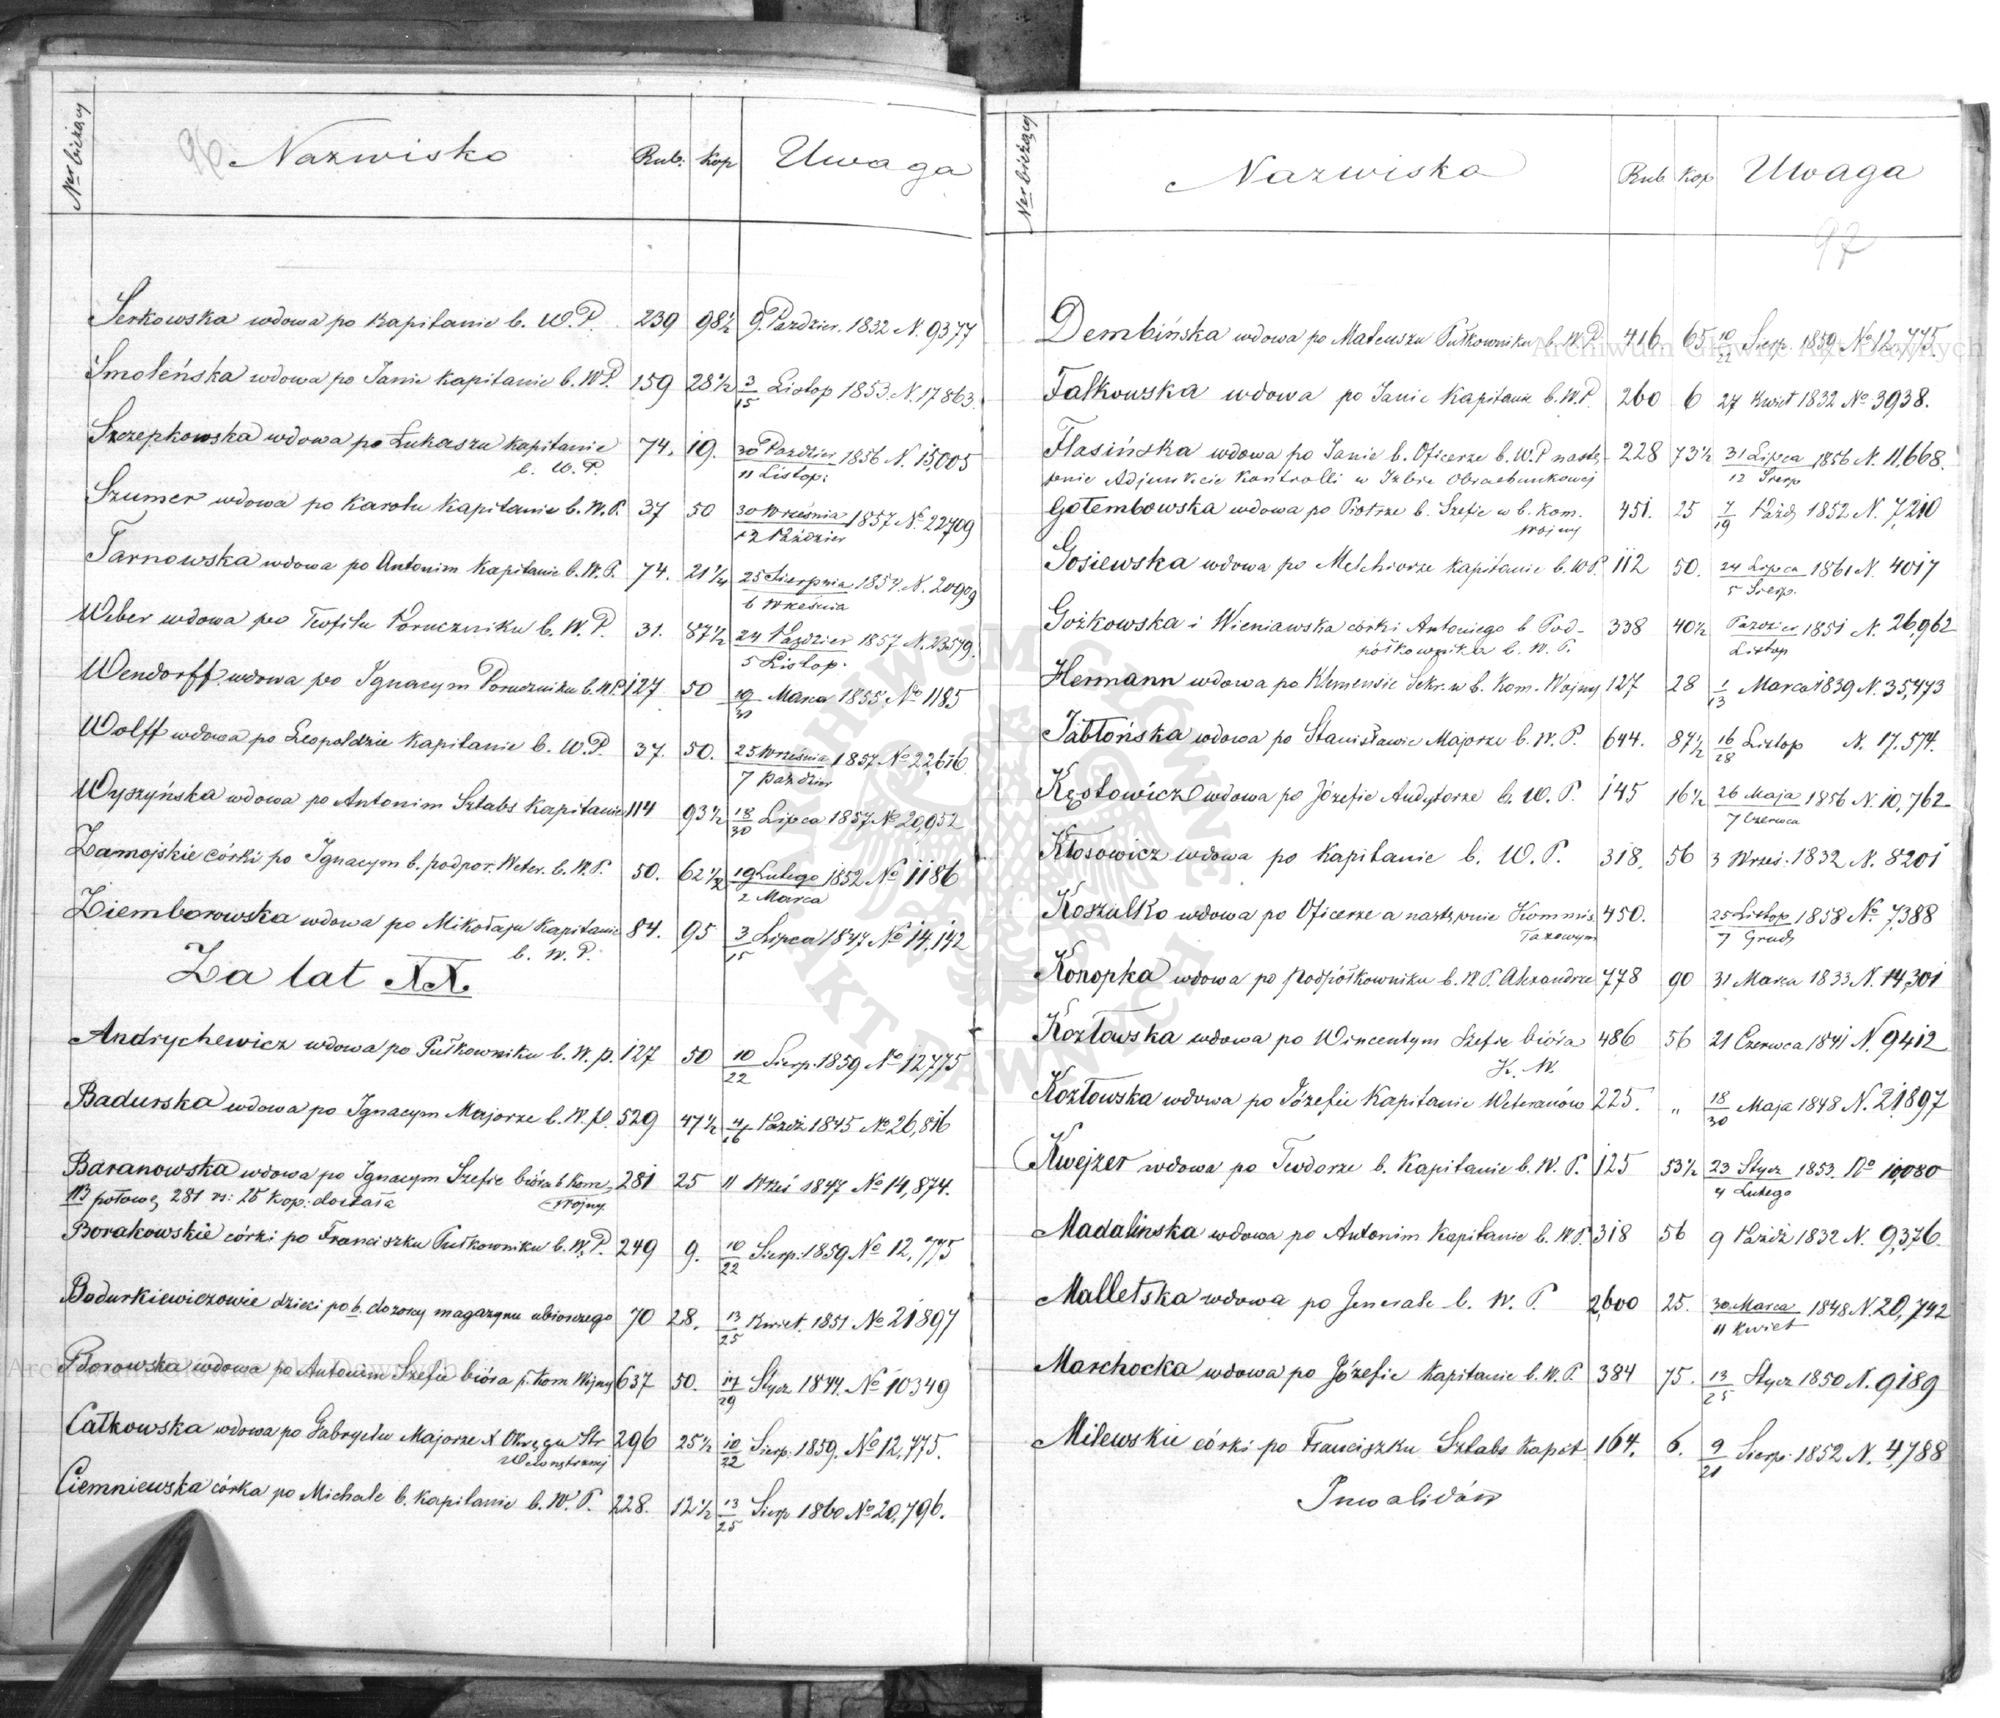 Ner bieżący 96 Nazwisko Rub. Kop Uwaga
Serkowska wdowa po Kapitanie b. W.P. 239 98½ 9. Paździer. 1832 N. 9377
Smoleńska wdowa po Janie Kapitanie b. W.P. 159 28½ 3/15 Listop 1853 N. 17863.
Szczepkowska wdowa po Łukaszu Kapitanie 74. 19. 30 Paździer 1856 N. 15,005
b. W. P. 11 Listop:
Szumer wdowa po Karolu Kapitanie b. W. P. 37 50 30 Września 1857 No 22709
12 Paździer
Tarnowska wdowa po Antonim Kapitanie b. W. P. 74. 21¼ 25 Sierpnia 1857. N. 20909
6 Września
Weber wdowa po Teofilu Poruczniku b. W. P. 31. 87½ 24 Paździer 1857 N. 23579.
5 Listop.
Wendorff wdowa po Ignacym Poruczniku b. W.P. 127 50 19/31 Marca 1855 No 1185
Wolff wdowa po Leopoldzie Kapitanie b. W.P. 37. 50. 25 Września 1857 No 22,616
7 Paździer
Wyszyńska wdowa po Antonim Sztabs Kapitanie 114 93½ 18/30 Lipca 1857 No 20,952
Zamojskie córki po Ignacym b. podpor. Weter. b. W. P. 50. 62½ 19 Lutego 1852 No 1186
2 Marca
Ziemborowska wdowa po Mikołaju Kapitanie 84. 95 3/15 Lipca 1847 No 14,142
b. W. P.
Za lat XX.
Andrychewicz wdowa po Pułkowniku b. W. P. 127 50 10/22 Sierp. 1859 No 12,775
Badurska wdowa po Ignacym Majorze b. W. P. 529 47½ 4/16 Paźdz 1845 No 26,816
Baranowska wdowa po Ignacym Szefie bióra b. Kom. 281 25 11 Wrześ 1847 No 14,874.
NB połowę 281 rs: 25 kop: dostała Wojny
Borakowskie córki po Franciszku Pułkowniku b. W. P. 249 9. 10/22 Sierp. 1859 No 12,775
Bodurkiewiczowie dzieci po b. dozorcy magazynu ubiorczego 70 28. 13/25 Kwiet. 1851 No 21897
wdowa po Antonim Szefie bióra b. Kom Wojny 637 50. 17/29 Stycz 1844. No 10349
Całkowska wdowa po Gabryelu Majorze X Okręgu Str 296 25½ 10/22 Sierp. 1859. No 12,775.
Wewnętrznej
Ciemniewska córka po Michale b. Kapitanie b. W. P. 228. 12½ 13/25 Sierp 1860 No 20,796.
Ner bieżący Nazwiska Rub Kop Uwaga
97
Dembińska wdowa po Mateuszu Pułkowniku b. W. P. 416 65 10/22 Sierp. 1859 No 12,775.
Falkowska wdowa po Janie Kapitanie b. W. P. 260 6 27 Kwiet 1832 No 3938.
Flasińska wdowa po Janie b. Oficerze b. W. P nastę- 228 73½ 31 Lipca 1856 N. 11,668.
pnie Adjunkcie Kontrolli w Izbie Obrachunkowej 12 Sierp
Gołembowska wdowa po Piotrze b. Szefie w b. Kom. 451. 25 7/19 Paźdz 1852 N. 7,210
Wojny
Gosiewska wdowa po Melchiorze Kapitanie b. W P. 112 50. 24 Lipca 1861 N. 4017
5 Sierp.
Gożkowska i Wieniawska córki Antoniego b Pod- 338 40½ Paździer 1851 N. 26,962
półkownika b. W. P. Listop
Hermann wdowa po Klemensie Sekr. w b. Kom. Wojny 127 28 1/13 Marca 1839 N. 35,473
Jabłońska wdowa po Stanisławie Majorze b. W. P. 644. 87½ 16/28 Listop N. 17,574.
wdowa po Józefie Audytorze b. W. P. 145 16½ 26 Maja 1856 N. 10,762
7 Czerwca
Kłosowicz wdowa po Kapitanie b. W. P. 318. 56 3 Wrześ. 1832 N. 8201
Koszulko wdowa po Oficerze a następnie Kommis. 450. 25 Listop 1858 No. 7,388
Taxowym 7 Grudz
Konopka wdowa po Podpółkowniku b. W P. Alxandrze 778 90 31 Marca 1833 N. 14,301
Kozłowska wdowa po Wincentym Szefie bióra 486 56 21 Czerwca 1841 N. 9412
K. W.
Kozłowska wdowa po Józefie Kapitanie Weteranów 225. „ 18/30 Maja 1848 N. 21897
Kwejzer wdowa po Teodorze b. Kapitanie b. W. P. 125 53½ 23 Stycz 1853. No 10,080
4 Lutego
Madalinska wdowa po Antonim Kapitanie b. W P. 318 56 9 Paźdz 1832 N. 9,376.
Malletska wdowa po Jenerale b. W. P. 2,600 25. 30 Marca 1848 N. 20,742
11 Kwiet
Marchocka wdowa po Józefie Kapitanie b. W. P. 384 75. 13/25 Stycz 1850 N. 9189
Milewskie córki po Franciszku Sztabs Kapit. 164. 6. 9/21 Sierp. 1852 N. 4,788
Inwalidów
Archiwum Główne Akt Dawnych